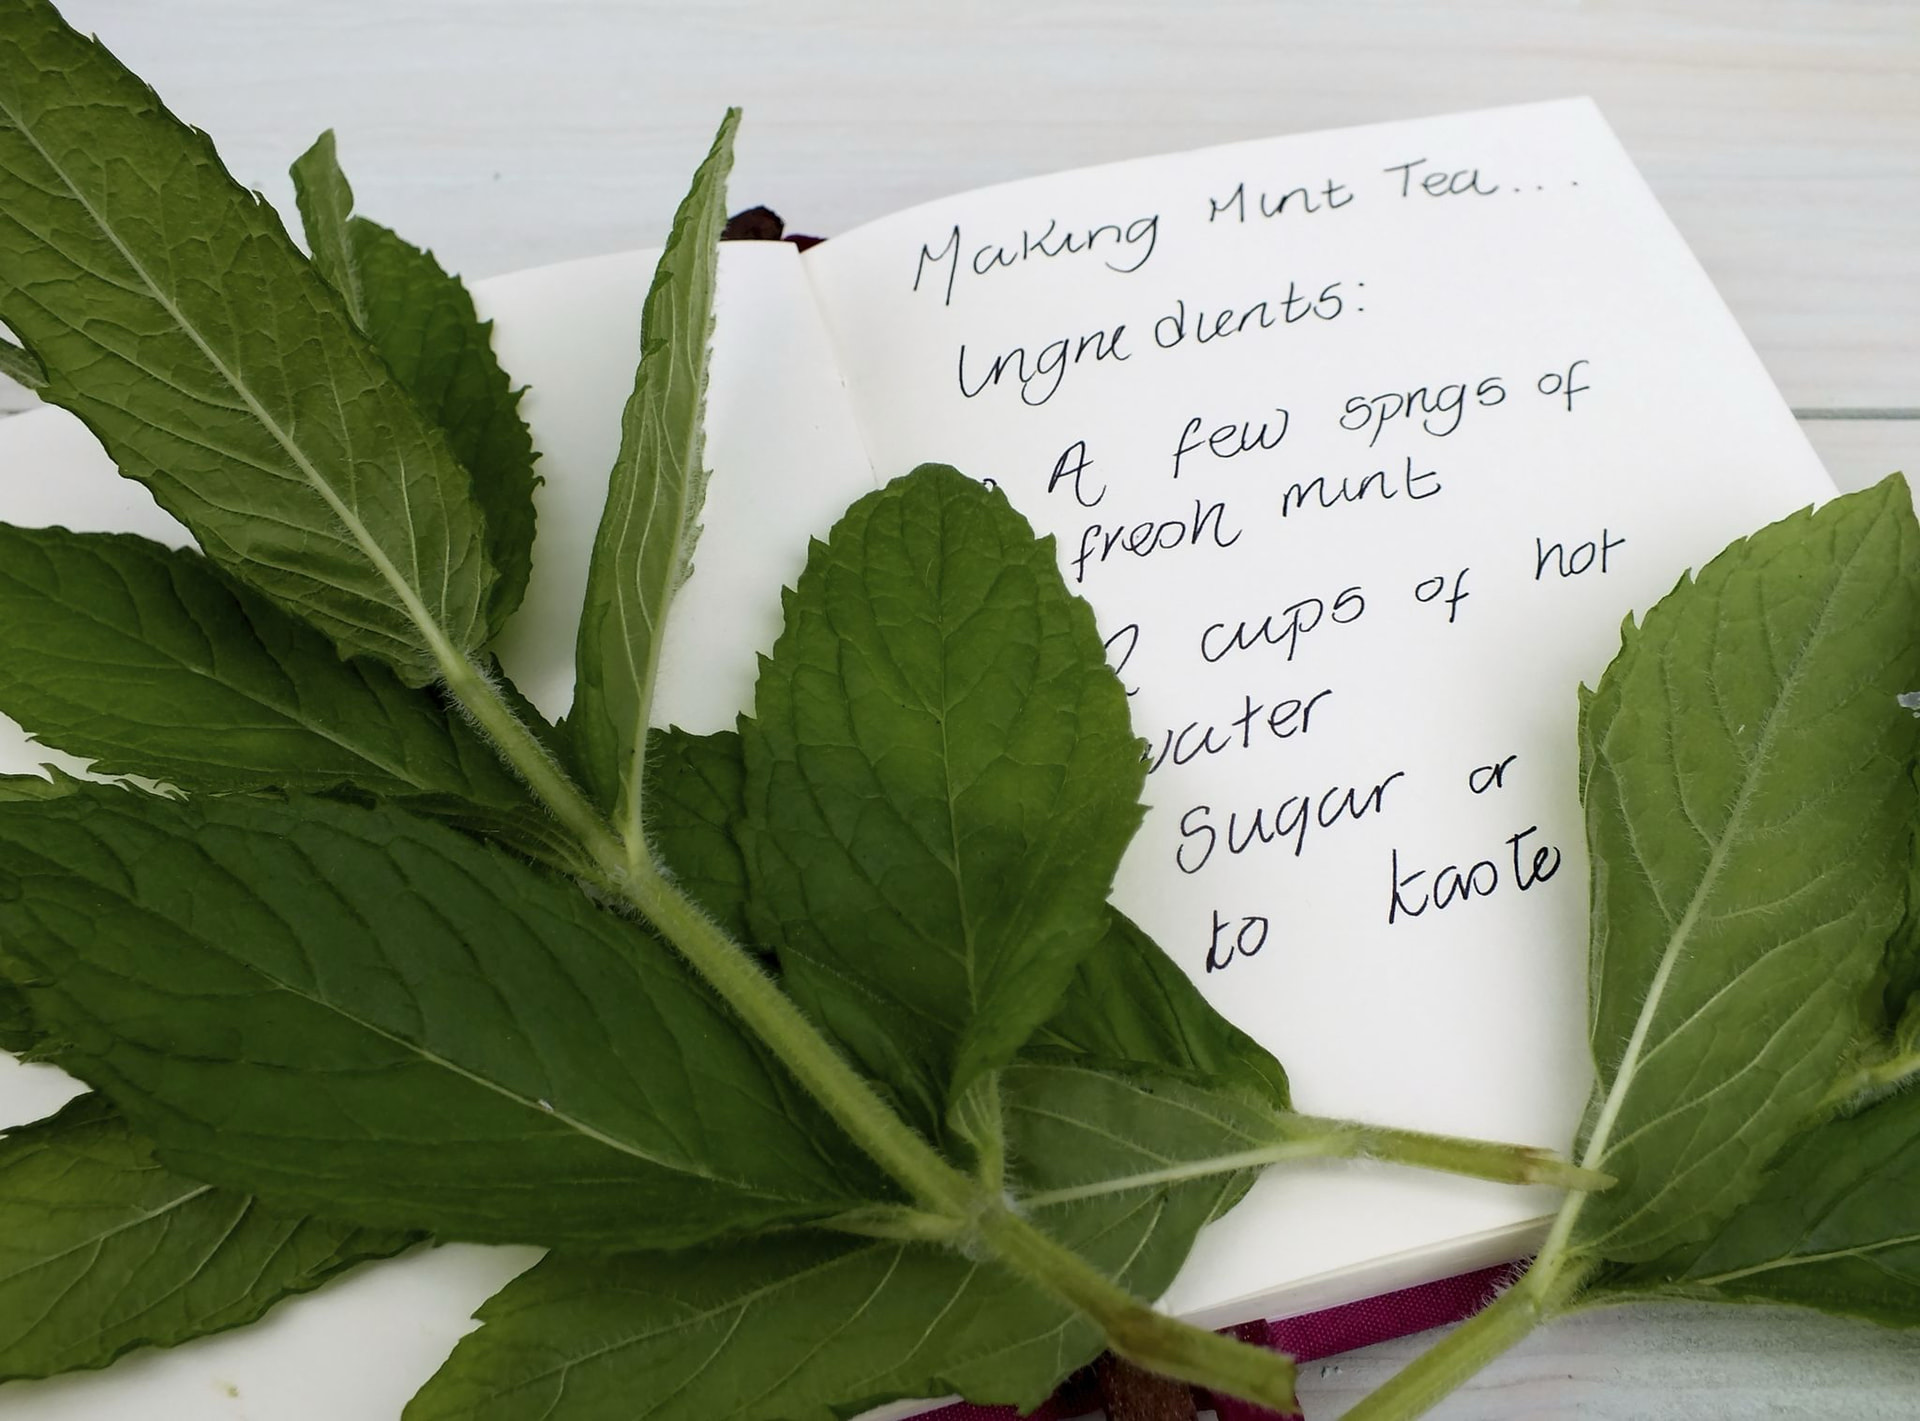 Making Mint Tea...
Ingredients:
A few sprigs of
fresh mint
2 cups of hot
water
Sugar or
to taste